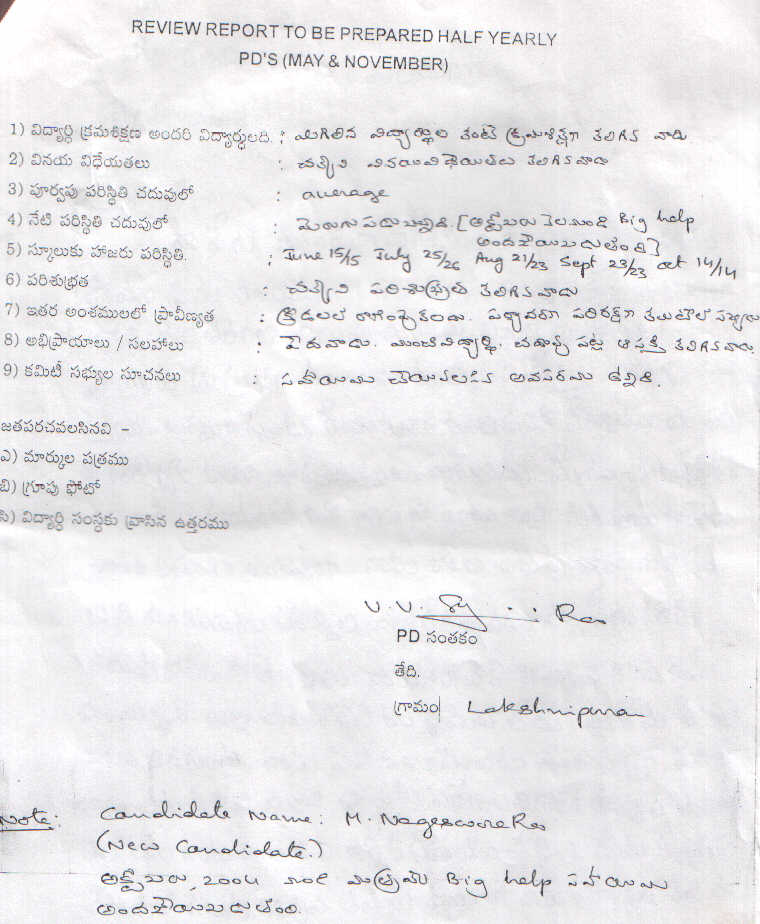 REVIEW REPORT TO BE PREPARED HALF YEARLY
PD'S (MAY & NOVEMBER)
1) విద్యార్థి క్రమశిక్షణ అందరి విద్యార్థులది. : మిగిలిన విద్యార్థుల కంటె క్రమశిక్షణ కలిగిన వాడు
2) వినయ విధేయతలు : చక్కని వినయవిధేయతలు కలిగినవాడు
3) పూర్వపు పరిస్థితి చదువులో : average
4) నేటి పరిస్థితి చదువులో : మెరుగు పడుచున్నది. [అక్టోబరు నెలనుండి Big help
అందచేయబడుతుంది]
5) స్కూలుకు హాజరు పరిస్థితి. : June 15/15 July 25/26 Aug 21/23 Sept 23/23 Oct 14/14
6) పరిశుభ్రత : చక్కని పరిశుభ్రత కలిగినవాడు
7) ఇతర అంశములలో ప్రావీణ్యత : క్రీడలలో పర్యావరణ పరిరక్షణ
8) అభిప్రాయాలు / సలహాలు : పేదవాడు. మంచి విద్యార్థి. చదువు పట్ల ఆసక్తి కలిగినవాడు.
9) కమిటీ సభ్యుల సూచనలు సహాయము చేయవలసిన అవసరము ఉన్నది.
జతపరచవలసినవి -
ఎ) మార్కుల పత్రము
బి) గ్రూపు ఫోటో
సి) విద్యార్థి సంస్థకు వ్రాసిన ఉత్తరము
V.V. Rao
PD సంతకం
తేది.
గ్రామం Lakshmipuram
Note: Candidate Name: M. NageswaraRao
(New Candidate.)
అక్టోబరు, 2004 నుండి మాత్రమే Big help సహాయము
అందచేయబడుతుంది.